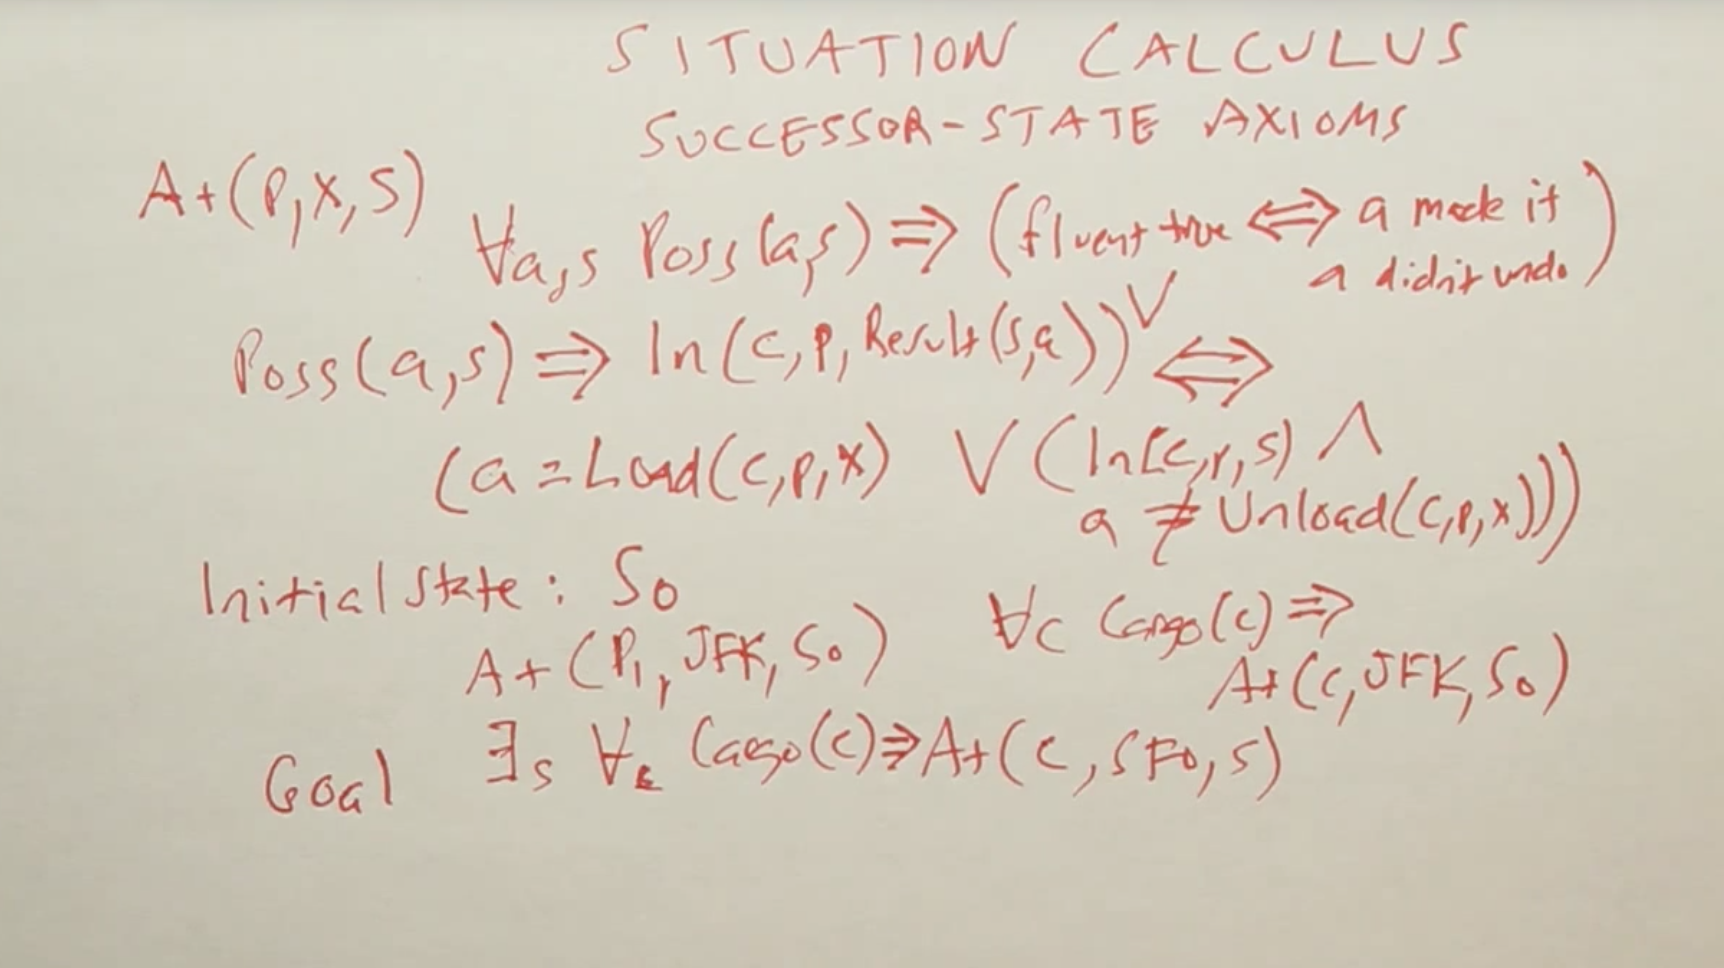 SITUATION CALCULUS
SUCCESSOR-STATE AXIOMS
At(P,X,S)
∀a,s Poss(a,s) ⇒ (fluent true ⇔ a made it
a didn't undo)
Poss(a,s) ⇒ In(C,P,Result(S,a)) ∨ ⇔
(a=Load(C,P,X) ∨ (In(C,P,S) ∧
a ≠ Unload(C,P,X)))
Initial State: S₀
At(P₁, JFK, S₀) ∀c Cargo(c) ⇒
At(C, JFK, S₀)
Goal ∃s ∀c Cargo(c) ⇒ At(C, SFO, S)